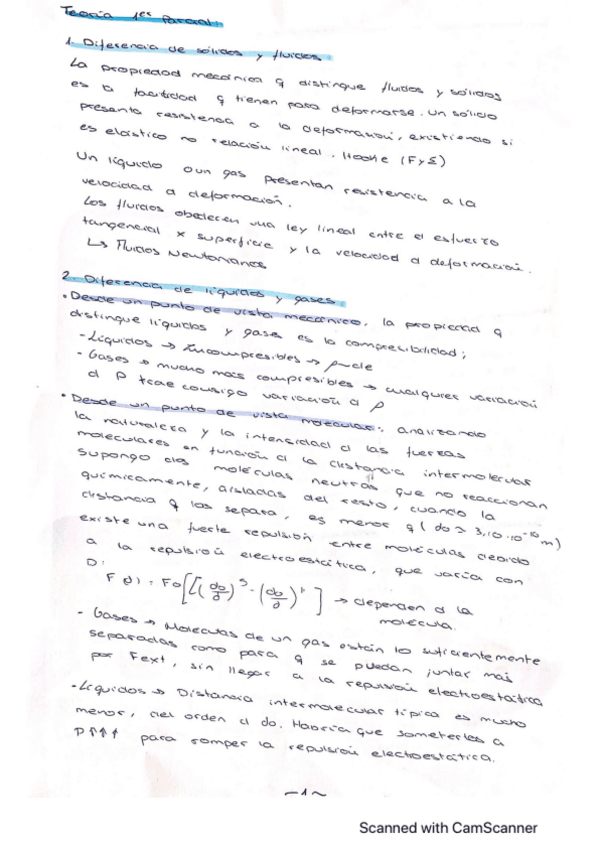 Teoría 1er Parcial:
1. Diferencia de sólidos y fluidos:
La propiedad mecánica q distingue fluidos y sólidos
es la facilidad q tienen para deformarse. Un sólido
presenta resistencia a la deformación, existiendo si
es elástico no relación lineal. Hooke (F y Σ)
Un líquido o un gas presentan resistencia a la
velocidad d deformación.
Los fluidos obedecen una ley lineal entre el esfuerzo
tangencial x superficie y la velocidad d deformación.
↳ Fluidos Newtonianos
2. Diferencia de líquidos y gases:
• Desde un punto de vista mecánico, la propiedad q
distingue líquidos y gases es la compresibilidad;
- Líquidos → Incompresibles → ρ~cte
- Gases → mucho más compresibles → cualquier variación
d P trae consigo variación d ρ
• Desde un punto de vista molecular: analizando
la naturaleza y la intensidad d las fuerzas
moleculares en función d la distancia intermolecular
Supongo dos moléculas neutras que no reaccionan
químicamente, aisladas del resto, cuando la
distancia q las separa, es menor q (do ≈ 3,10·10⁻¹⁰ m)
existe una fuerte repulsión entre moléculas debido
a la repulsión electroestática, que varía con
D:
F(d) = Fo[(do/d) - (do/d)] → dependen d la
molécula.
- Gases → Moléculas de un gas están lo suficientemente
separadas como para q se puedan juntar más
por Fext, sin llegar a la repulsión electroestática
- Líquidos → Distancia intermolecular típica es mucho
menor, del orden d do. Habría que someterlos a
P↑↑↑ para romper la repulsión electroestática.
-1~
Scanned with CamScanner